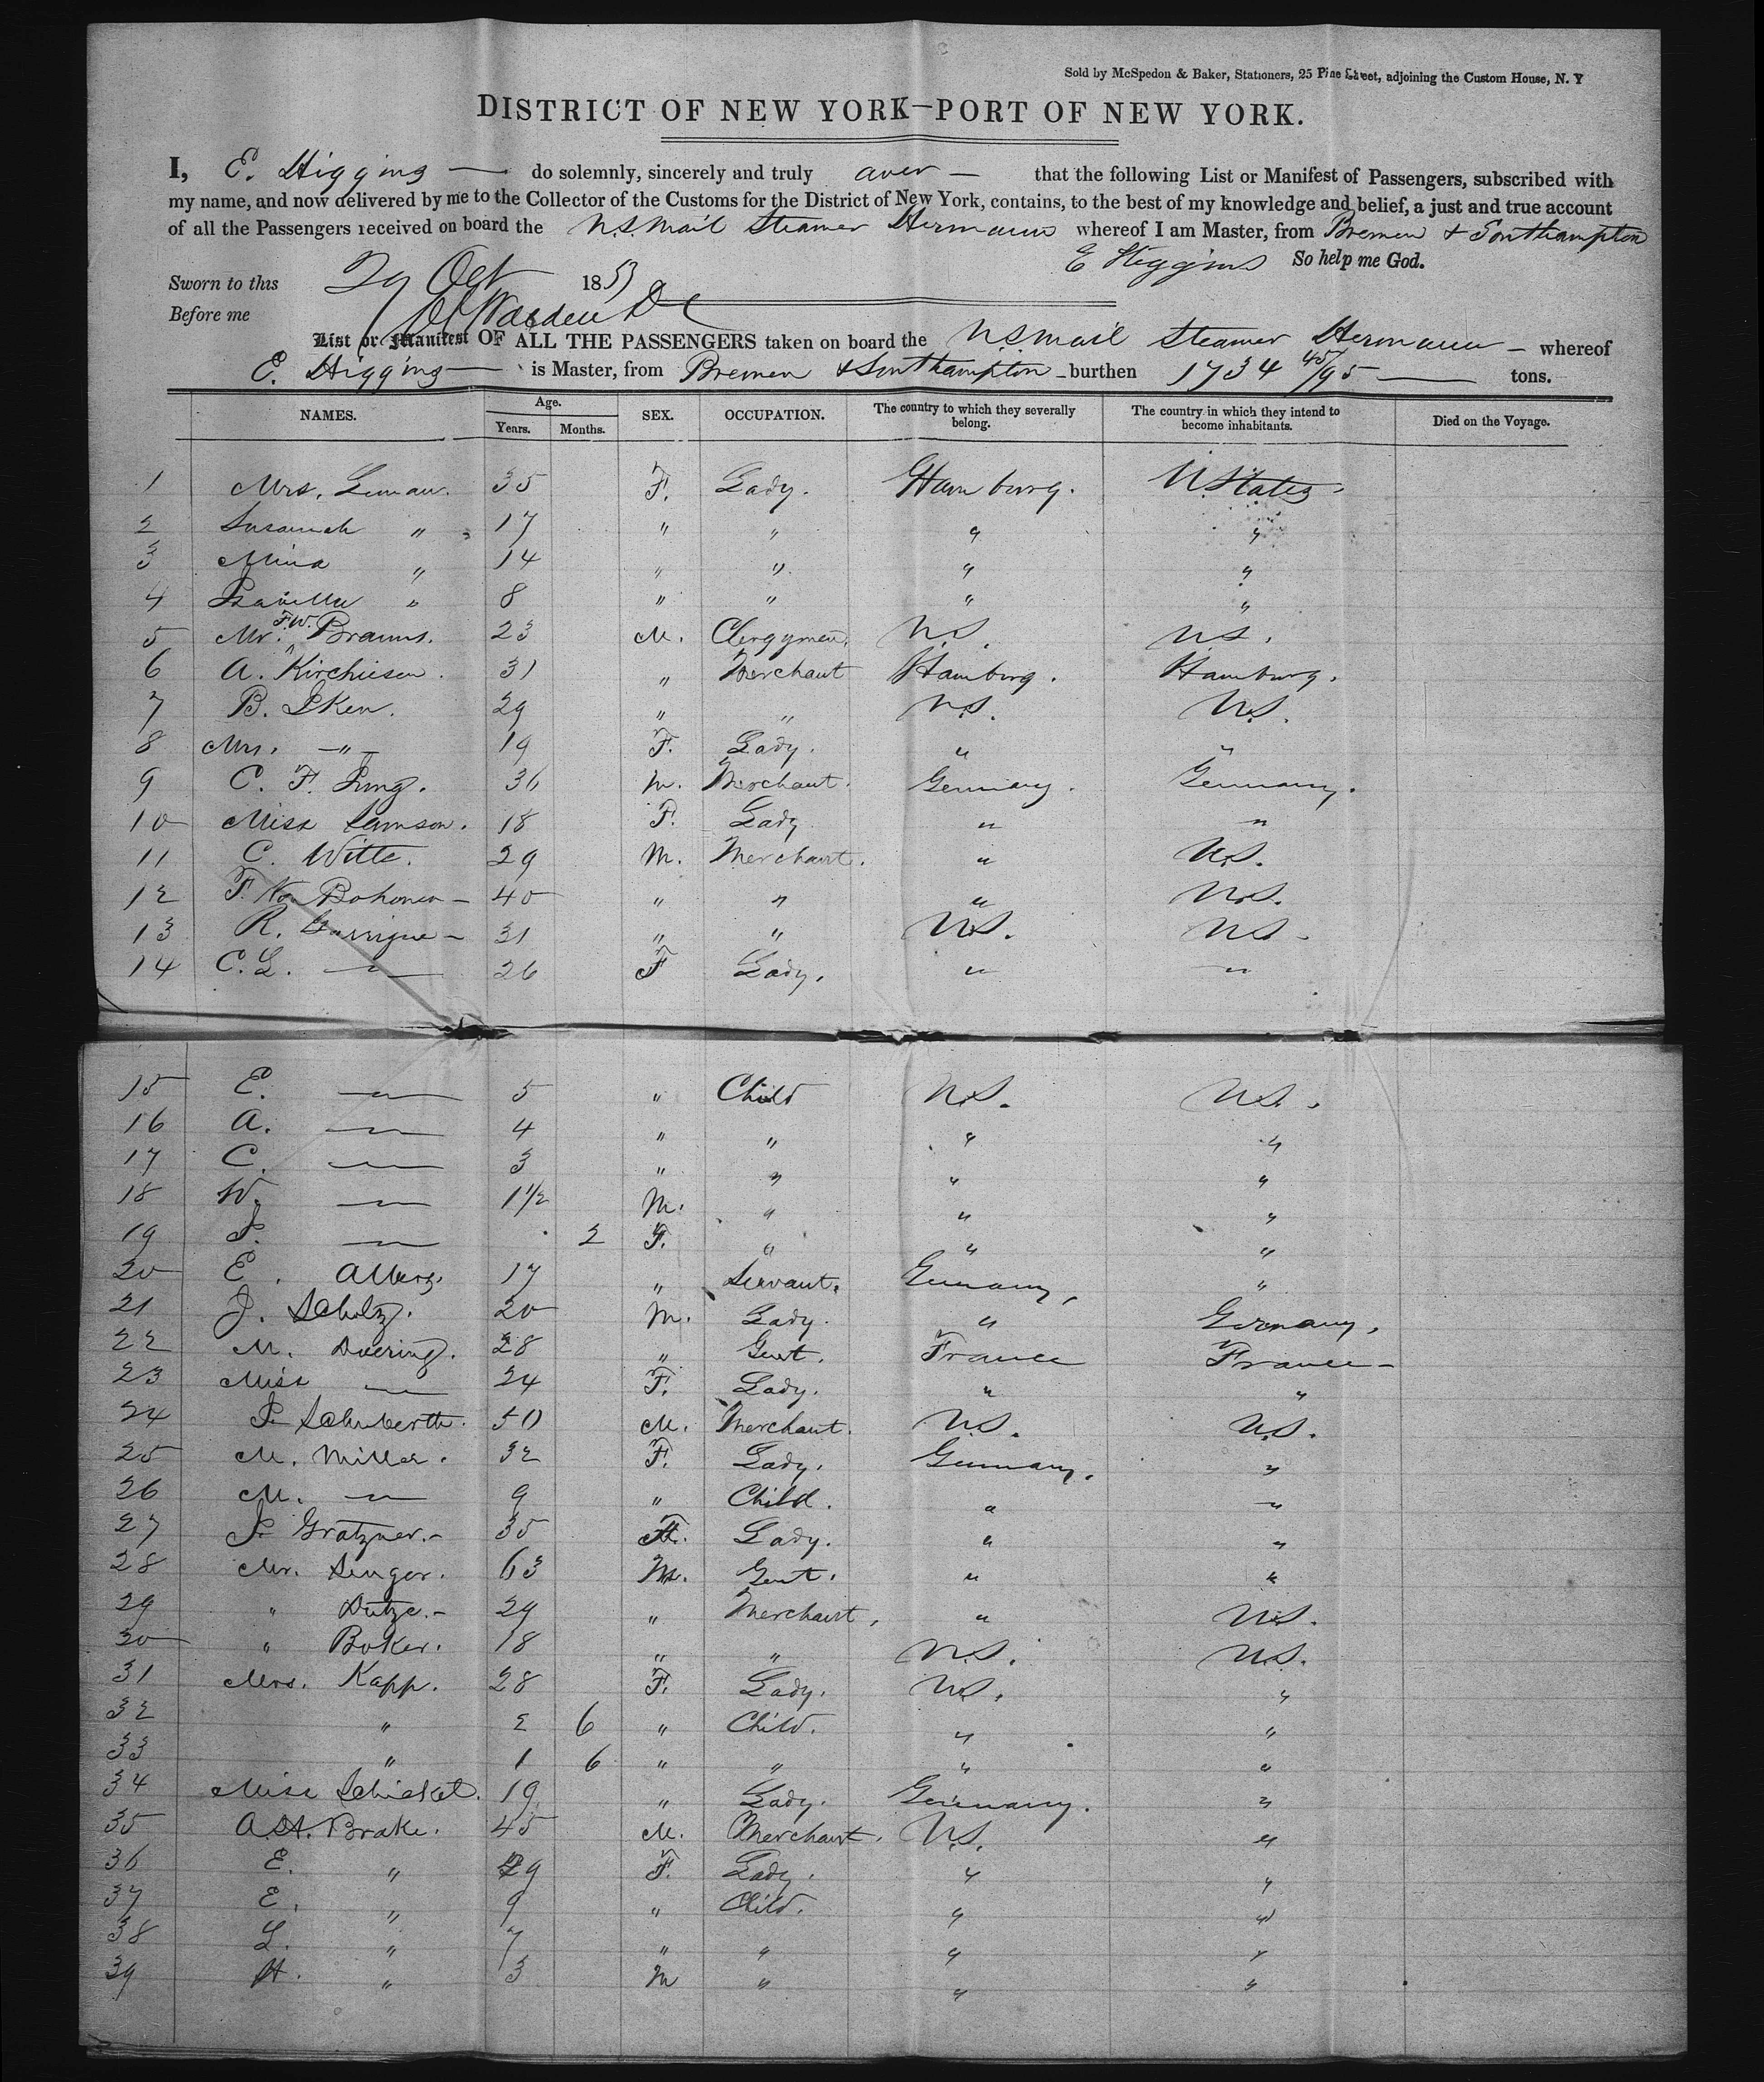 Sold by McSpedon & Baker, Stationers, 25 Pine Street, adjoining the Custom House, N. Y
DISTRICT OF NEW YORK—PORT OF NEW YORK.
I, E. Higgins — do solemnly, sincerely and truly aver — that the following List or Manifest of Passengers, subscribed with
my name, and now delivered by me to the Collector of the Customs for the District of New York, contains, to the best of my knowledge and belief, a just and true account
of all the Passengers received on board the U.S. Mail Steamer Hermann whereof I am Master, from Bremen & Southampton
E Higgins So help me God.
Sworn to this 29 Oct 1853
Before me
List or Manifest OF ALL THE PASSENGERS taken on board the U.S Mail Steamer Hermann — whereof
E. Higgins — is Master, from Bremen & Southampton - burthen 1734 45/95 — tons.
NAMES. Age. Years. Months. SEX. OCCUPATION. The country to which they severally belong. The country in which they intend to become inhabitants. Died on the Voyage.
1 Mrs. 35 F. Lady. Hamburg. U. States.
2 Susannah " 17 " " " "
3 Mina " 14 " " " "
4 Isabella " 8 " " " "
5 Mr. F.W. Brauns. 23 M. Clergyman. U.S. U.S.
6 A. Kirchiesen. 31 " Merchant Hamburg. Hamburg.
7 B. Iken. 29 " " U.S. U.S.
8 Mrs. — " — 19 F. Lady. " "
9 C. F. Jung. 36 M. Merchant. Germany. Germany.
10 Miss Samson. 18 F. Lady " "
11 C. Witte. 29 M. Merchant. " U.S.
12 F. 40 " " " U.S.
13 R. Garrigue — 31 " " U.S. U.S.
14 C. L. — " — 26 F Lady. " "
15 E. — " — 5 " Child U.S. U.S.
16 A. — " — 4 " " " "
17 C. — " — 3 " " " "
18 W. — " — 1 1/2 M. " " "
19 — " — 2 F. " " "
20 E. Albers. 17 " Servant. Germany, "
21 J. Schulz. 20 M. Lady. " Germany,
22 M. Doering. 28 " Gent. France France —
23 Miss — " — 24 F. Lady. " "
24 Schuberth. 50 M. Merchant. U.S. U.S.
25 M. Miller. 32 F. Lady. Germany. "
26 M. — " — 9 " Child. " "
27 Gratzner. — 35 F. Lady. " "
28 Mr. Singer. 63 M. Gent. " "
29 " Dutze. — 29 " Merchant, " U.S.
30 " Boker. 18 " " U.S. U.S.
31 Mrs. Kapp. 28 F. Lady. U.S. "
32 " 2 6 " Child. " "
33 " 1 6 " " " "
34 Miss Schickel. 19 " Lady. Germany. "
35 A.H. Brake. 45 M. Merchant. U.S. "
36 E. " 29 F. Lady. " "
37 E. " 9 " Child. " "
38 L. " 7 " " " "
39 H. " 3 M " " "